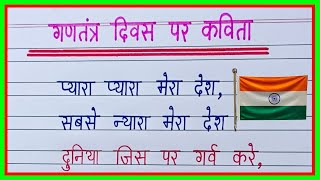 गणतंत्र दिवस पर कविता
प्यारा प्यारा मेरा देश,
सबसे न्यारा मेरा देश
दुनिया जिस पर गर्व करे,